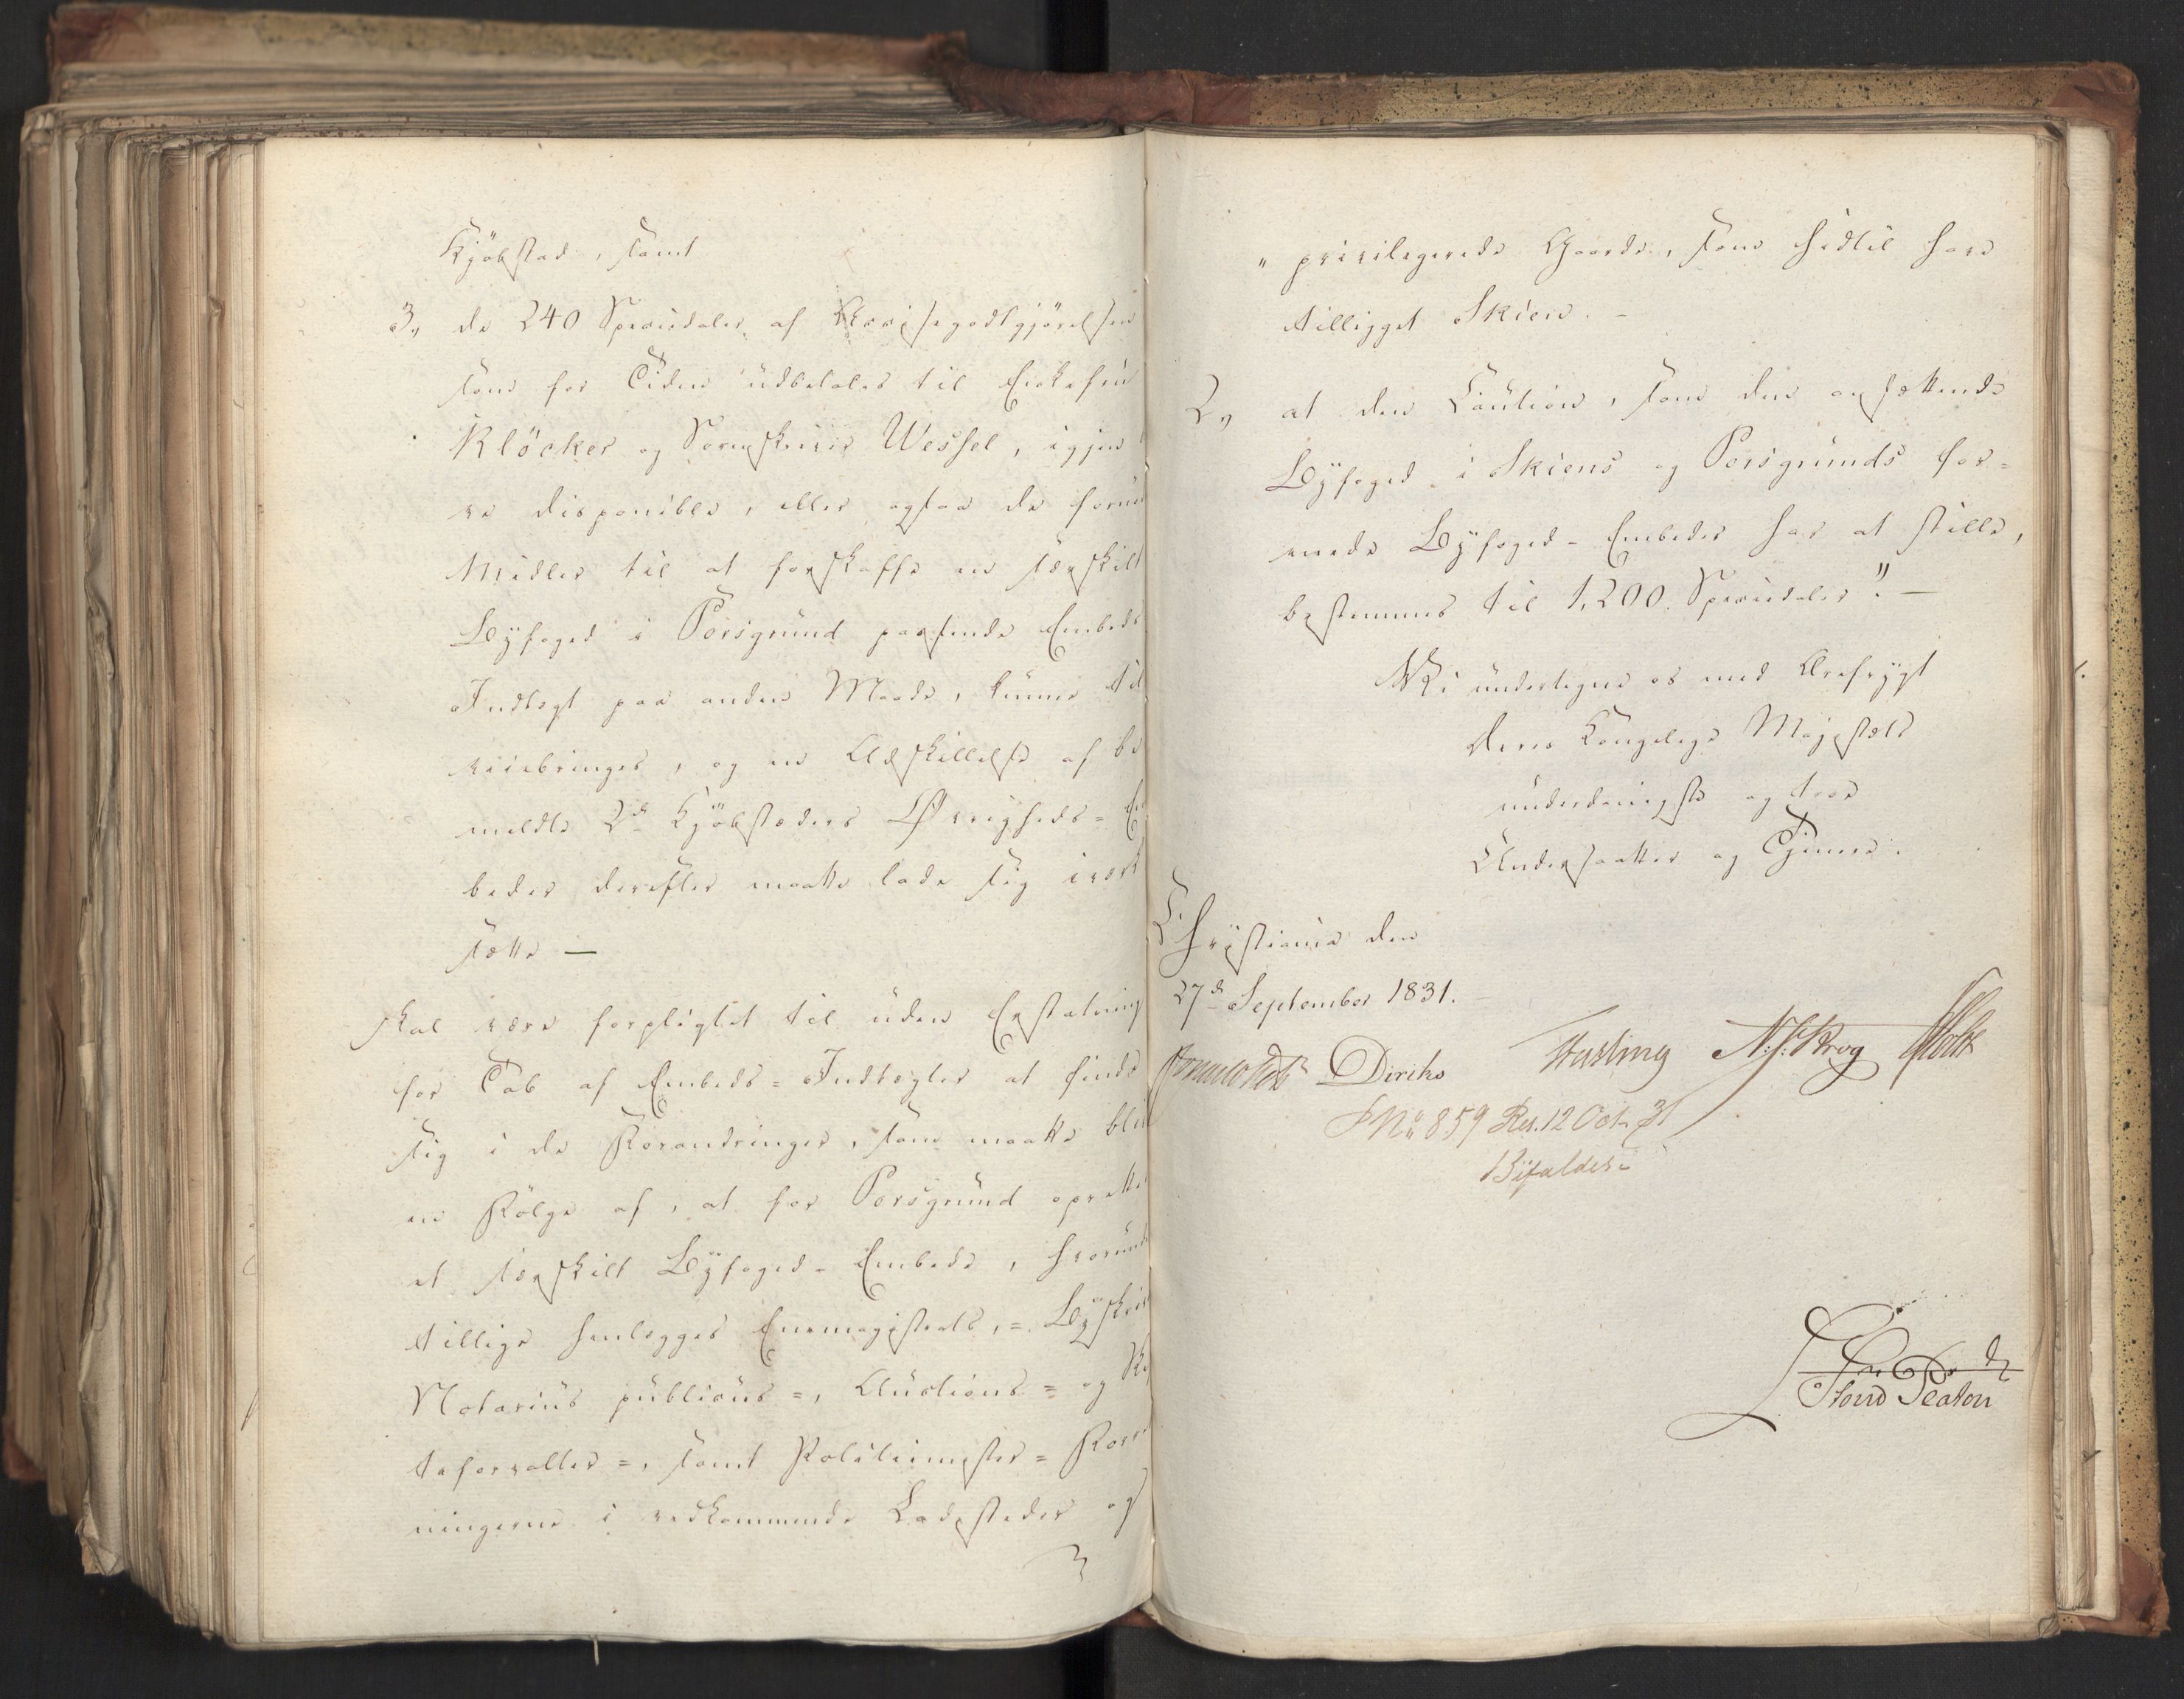 Kjøbstad, samt
3., de 240 Speciedaler af Accisegodtgjørelsen
som for Tiden udbetales til Enkefru
Kløcker og Sorenskriver Wessel, igjen
re disponible, eller ogsaa de fornø
Midler til at forskaffe en særskilt
Byfoged i Porsgrund passende Embeds
Indtægt paa anden Maade, kunne til
veiebringes, og en Adskillelse af be
meldte 2de Kjøbstæders Øvrigheds= Em
beder derefter maatte lade sig iværk
sætte —
skal være forpligtet til uden Erstatning
for Tab af Embeds=Indtægter at finde
sig i de Forandringer, som maatte bliv
en Følge af, at for Porsgrund oprettes
et særskilt Byfoged-Embede, hvorunder
tillige henlægges Enemagistrats,= Byskriv
Notarius publicus=, Auctions= og Ro
teforvalter=, samt Politiemester= Forre
ningerne i vedkommende Ladesteder og
" privilegerede Gaarde, som hidtil have
tilligget Skien. -
2., at den Caution, som den ansættende
Byfoged i Skiens og Porsgrunds for=
enede Byfoged-Embeder har at stille,
bestemmes til 1,200. Speciedaler". —
Vi undertegne os med Ærefrygt
Deres Kongelige Majestæts
underdanigste og troe
Undersaatter og Tjenere.
Christiania den
27de September 1831. -
Diriks N. J. Krog
No 859 Res. 12 Oct. 31
Bifaldes.